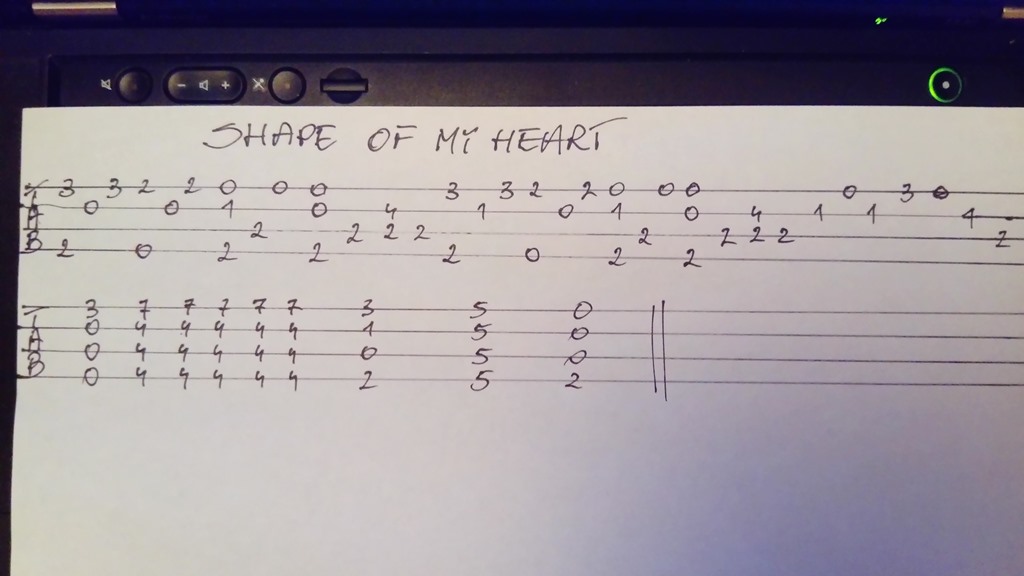 SHAPE OF MY HEART
T 3 3 2 2 0 0 0 3 3 2 2 0 0 0 0 3 0
A 0 0 1 0 4 1 0 1 0 4 1 1 4
2 2 2 2 2 2 2 2 2
B 2 0 2 2 2 0 2 2
T 3 7 7 7 7 7 3 5 0
A 0 4 4 4 4 4 1 5 0
0 4 4 4 4 4 0 5 0
B 0 4 4 4 4 4 2 5 2